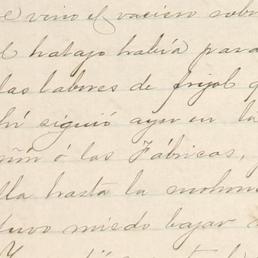 e vino el vaciero sobr
el hatajo había para
las labores de frijol q
hí siguió ayer en la
ñón ó las Fábricas,
lla hasta la mohon
tuvo miedo bajar